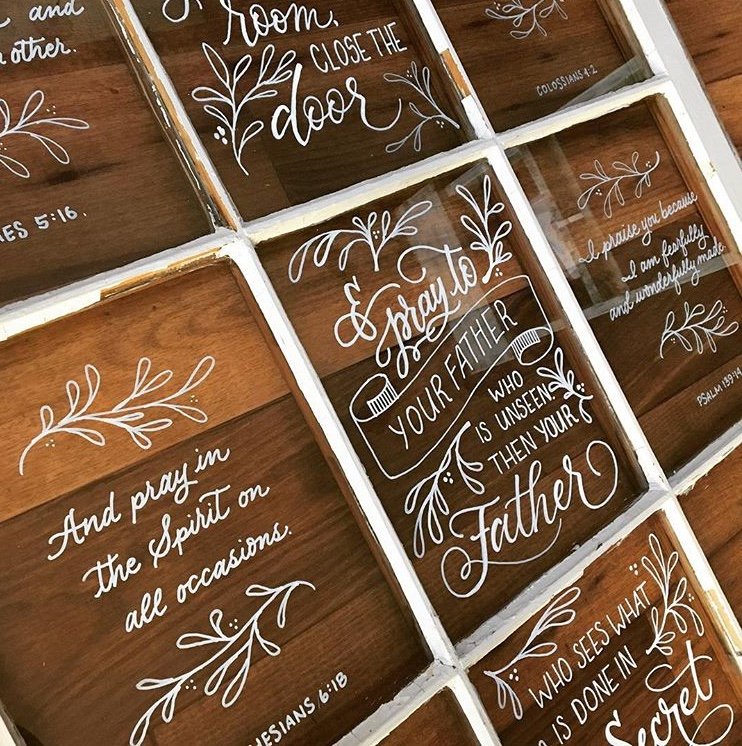 and
other.
ES 5:16.
room,
CLOSE THE
door
COLOSSIANS 4:2
And pray in
the Spirit on
all occasions.
HESIANS 6:18
& pray to
YOUR FATHER
WHO
IS UNSEEN.
THEN YOUR
Father
I praise you because
I am fearfully
and wonderfully made.
PSALM 139:14
WHO SEES WHAT
IS DONE IN
Secret